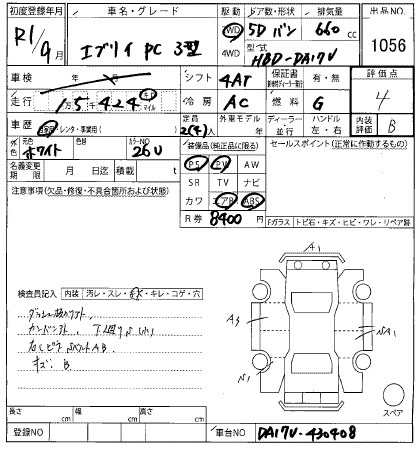 初度登録年月 車名・グレード 駆動 ドア数・形状 排気量 出品NO
R1/9月 エブリイ PC 3型 2WD 5D バン 660 cc 1056
4WD 型式 HBD-DA17V
車検 年 月 シフト 4AT 保証書 有・無 評価点
走行 1万5千424 キロ マイル 冷房 AC 燃料 G 4
車歴 自家用・レンタ・事業用( ) 定員 2(4)人 外車モデル 年 ディーラー・並行 ハンドル 左・右 内装 B
外色 元色 ホワイト 色替 カラーNO 26U 装備品(純正品に限る) セールスポイント(正常に作動するもの)
名義変更期限 月 日迄 積載 t PS PW AW
注意事項(欠品・修復・不具合箇所および状態) SR TV ナビ
カワ エアB ABS
R券 8400 円 Fガラス トビ石・キズ・ヒビ・ワレ・リペア跡
A1
検査員記入 内装 汚レ・スレ・キズ・キレ・コゲ・穴
A3 NA1
キズ B
N1
スペア
長さ cm 幅 cm 高さ cm
登録NO 車台NO DA17V-430408